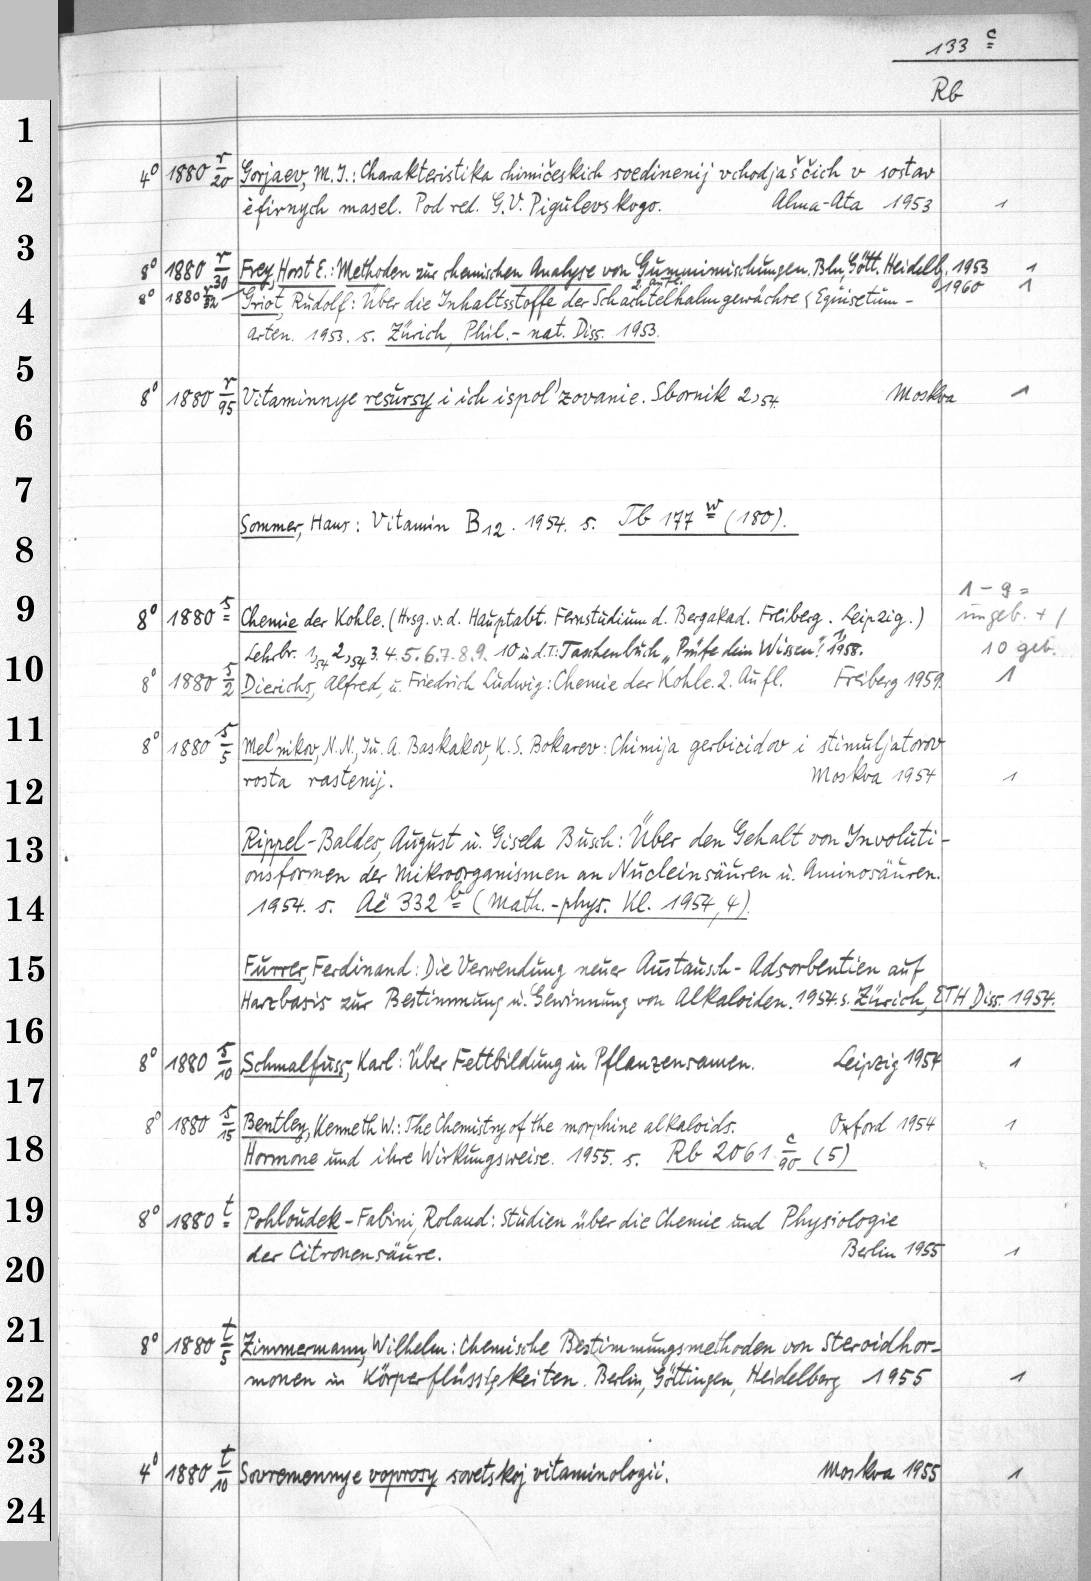 133 c
Rb
1
2
3
4
5
6
7
8
9
10
11
12
13
14
15
16
17
18
19
20
21
22
23
24
4° 1880 r/20 Gorjaev, M.I.: Charakteristika chimičeskich soedinenij vchodjaščich v sostav
ėfirnych masel. Pod red. G.V. Pigulevskogo. Alma-Ata 1953 1
8° 1880 r/30 Frey, Horst E.: Methoden zur chemischen Analyse von Gummimischungen. Bln, Gött. Heidelb. 1953 1
2. Aufl. 1960 1
8° 1880 r/32 Griot, Rudolf: Über die Inhaltsstoffe der Schachtelhalmgewächse (Equisetum-
arten. 1953. s. Zürich, Phil.-nat. Diss. 1953.
8° 1880 r/95 Vitaminnye resursy i ich ispol'zovanie. Sbornik 2,54. Moskva 1
Sommer, Hans: Vitamin B12. 1954. s. Tb 177 w (180).
1-9 =
8° 1880 s Chemie der Kohle. (Hrsg. v. d. Hauptabt. Fernstudium d. Bergakad. Freiberg. Leipzig.) ungeb. + 1
Lehrbr. 1,54 2,54 3. 4. 5. 6. 7. 8. 9. 10 u.d.T: Taschenbuch "Prüfe dein Wissen". 1958. 10 geb.
8° 1880 s/2 Dierichs, Alfred, u. Friedrich Ludwig: Chemie der Kohle. 2. Aufl. Freiberg 1959. 1
8° 1880 s/5 Mel'nikov, N.N., Ju. A. Baskakov, K.S. Bokarev: Chimija gerbicidov i stimuljatorov
rosta rastenij. Moskva 1954 1
Rippel-Baldes, August u. Gisela Busch: Über den Gehalt von Involuti-
onsformen der Mikroorganismen an Nucleinsäuren u. Aminosäuren.
1954. s. Aë 332 b (Math.-phys. Kl. 1954, 4).
Furrer, Ferdinand: Die Verwendung neuer Austausch-Adsorbentien auf
Harzbasis zur Bestimmung u. Gewinnung von Alkaloiden. 1954. s. Zürich, ETH Diss. 1954.
8° 1880 s/10 Schmalfuss, Karl: Über Fettbildung in Pflanzensamen. Leipzig 1954 1
8° 1880 s/15 Bentley, Kenneth W.: The Chemistry of the morphine alkaloids. Oxford 1954 1
Hormone und ihre Wirkungsweise. 1955. s. Rb 2061 c/90 (5)
8° 1880 t Pohloudek-Fabini, Roland: Studien über die Chemie und Physiologie
der Citronensäure. Berlin 1955 1
8° 1880 t/5 Zimmermann, Wilhelm: Chemische Bestimmungsmethoden von Steroidhor-
monen in Körperflüssigkeiten. Berlin, Göttingen, Heidelberg 1955 1
4° 1880 t/10 Sovremennye voprosy sovetskoj vitaminologii. Moskva 1955 1